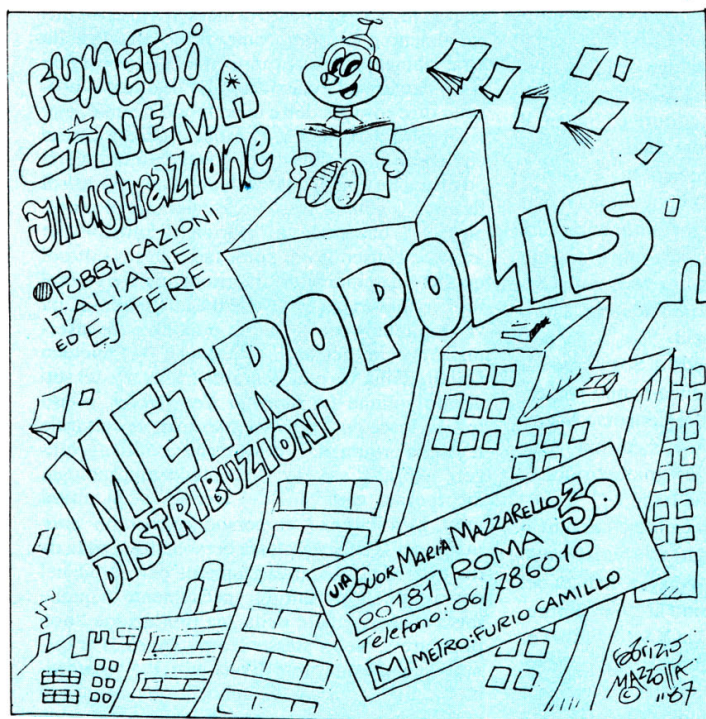 FUMETTI
CINEMA
illustrazione
PUBBLICAZIONI
ITALIANE
ED ESTERE
METROPOLIS
DISTRIBUZIONI
VIA SUOR MARIA MAZZARELLO 30
00181 ROMA
Telefono: 06/786010
M METRO: FURIO CAMILLO
FABRIZIO
MAZZOTTA
© "87